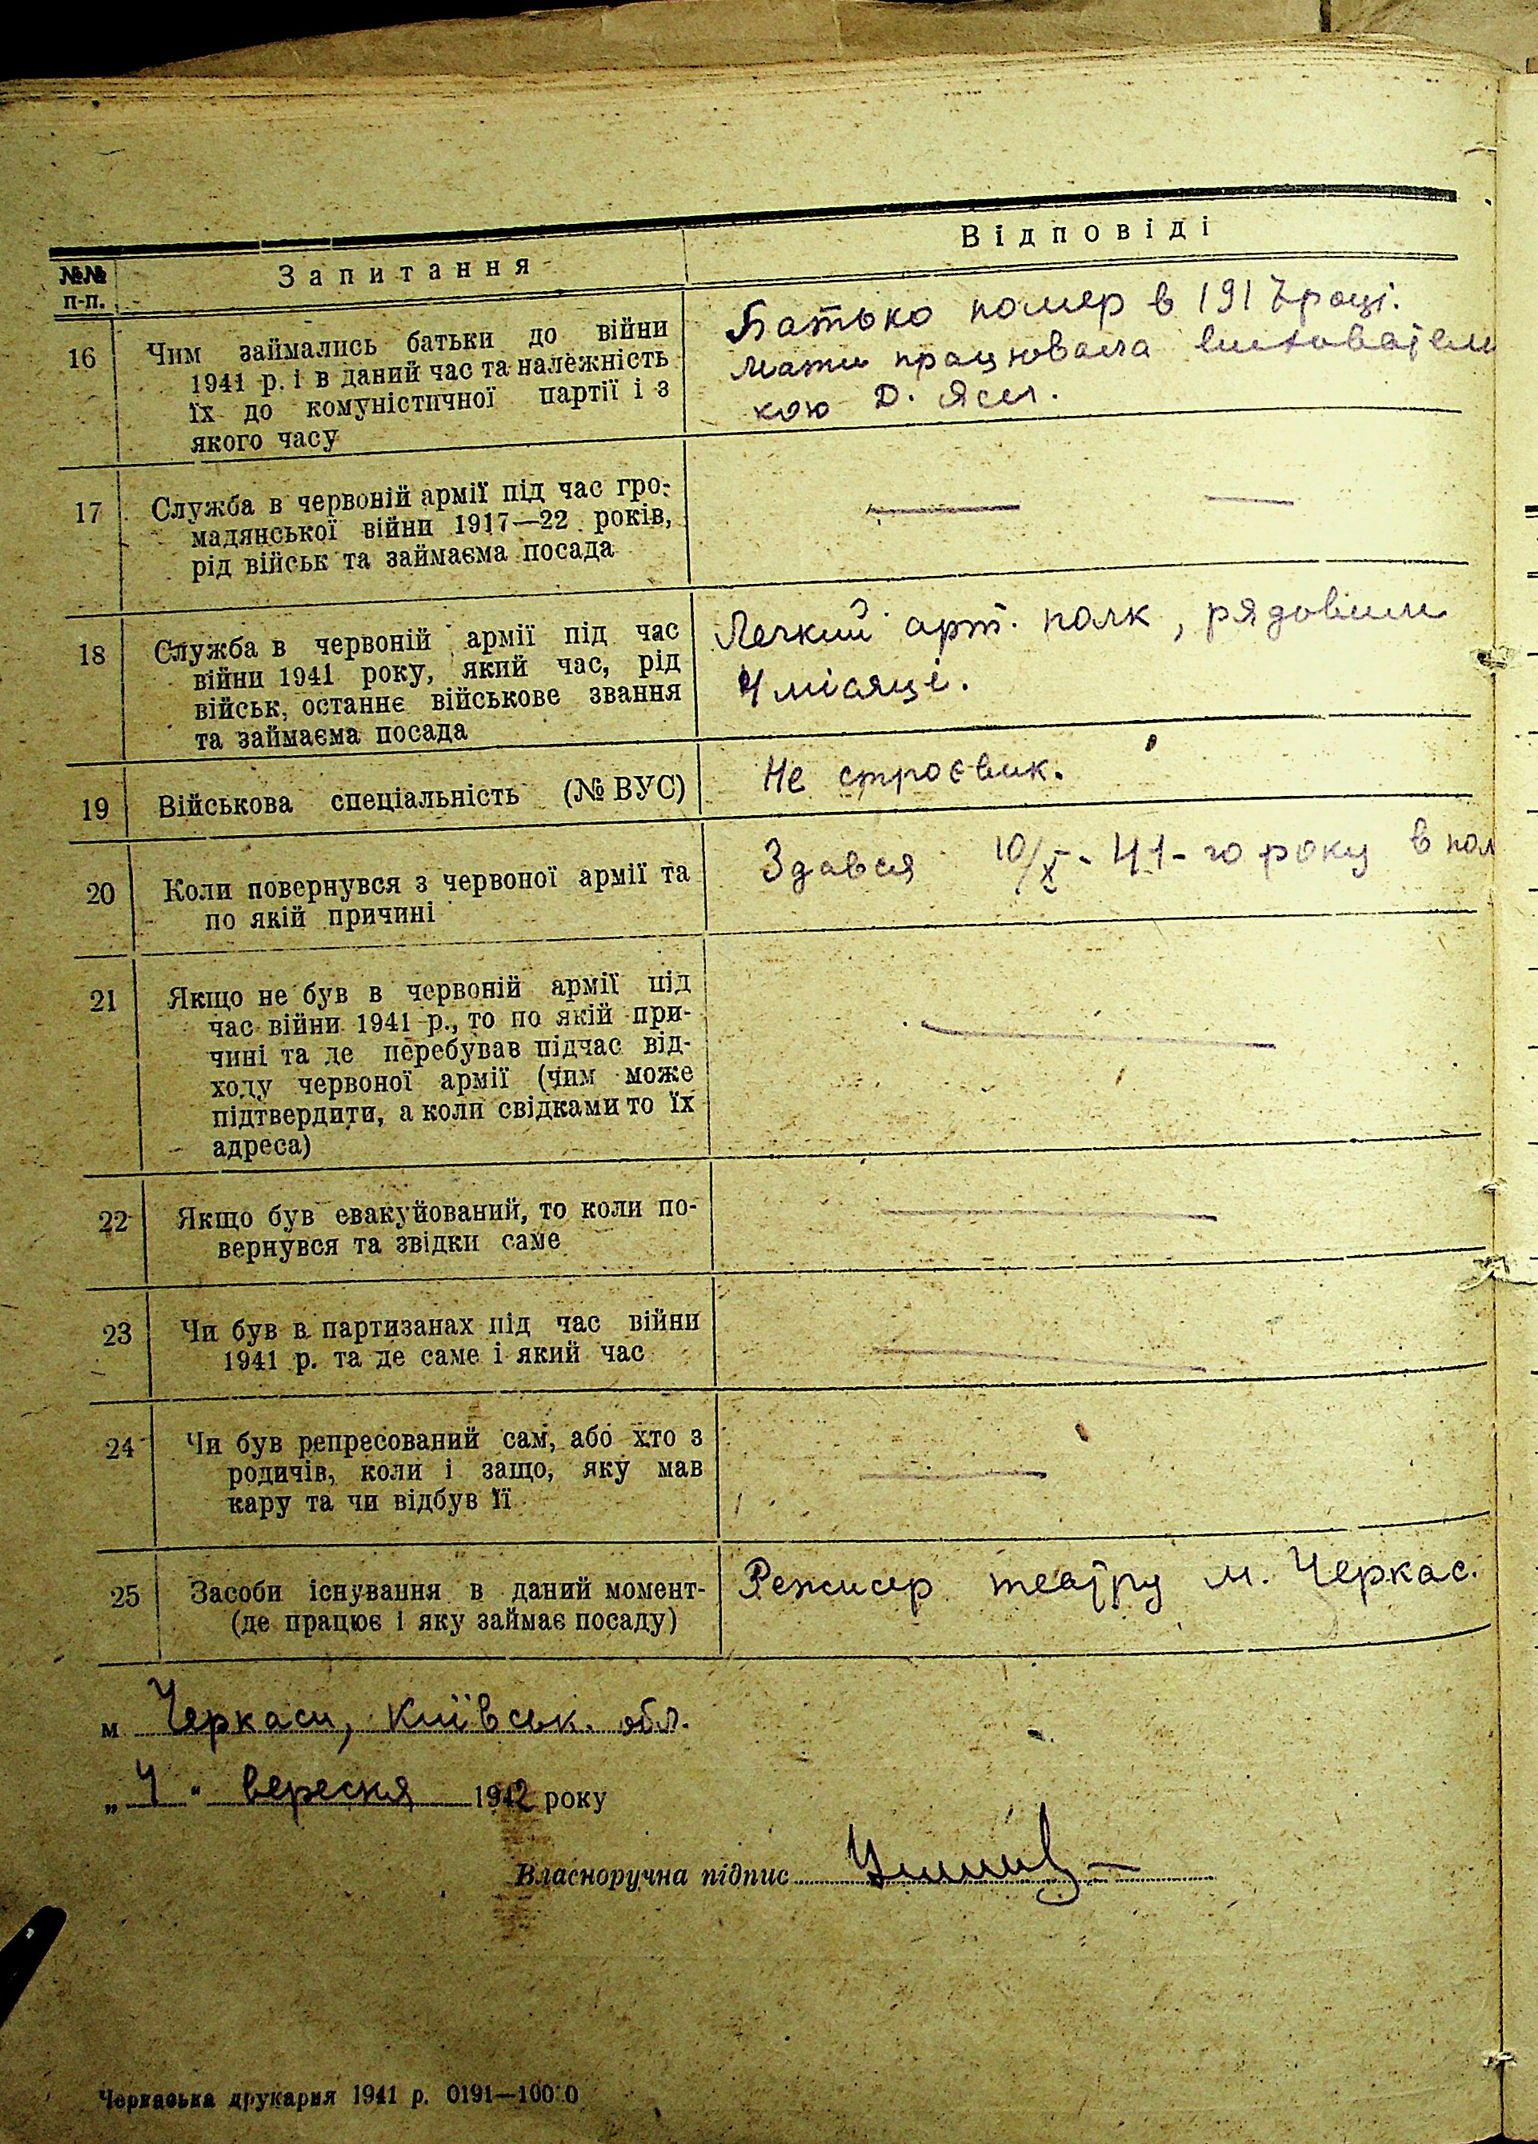 №№ п-п. Запитання Відповіді
16 Чим займались батьки до війни
1941 р. і в даний час та належність
їх до комуністичної партії і з
якого часу
Батько помер в 1917 році.
Мати працювала вихователь
кою Д. Ясел.
17 Служба в червоній армії під час гро-
мадянської війни 1917—22 років,
рід військ та займаєма посада
— —
18 Служба в червоній армії під час
війни 1941 року, який час, рід
військ, останнє військове звання
та займаєма посада
Легкий арт. полк, рядовим
4 місяці.
19 Військова спеціальність (№ ВУС)
Не строєвик.
20 Коли повернувся з червоної армії та
по якій причині
Здався 10/X - 41-го року в пол
21 Якщо не був в червоній армії під
час війни 1941 р., то по якій при-
чині та де перебував підчас від-
ходу червоної армії (чим може
підтвердити, а коли свідками то їх
адреса)
—
22 Якщо був евакуйований, то коли по-
вернувся та звідки саме
—
23 Чи був в партизанах під час війни
1941 р. та де саме і який час
—
24 Чи був репресований сам, або хто з
родичів, коли і защо, яку мав
кару та чи відбув її
—
25 Засоби існування в даний момент-
(де працює і яку займає посаду)
Режисер театру м. Черкас.
м Черкаси, Київськ. обл.
„4" вересня 1942 року
Власноручна підпис
Черкаська друкарня 1941 р. 0191—10000